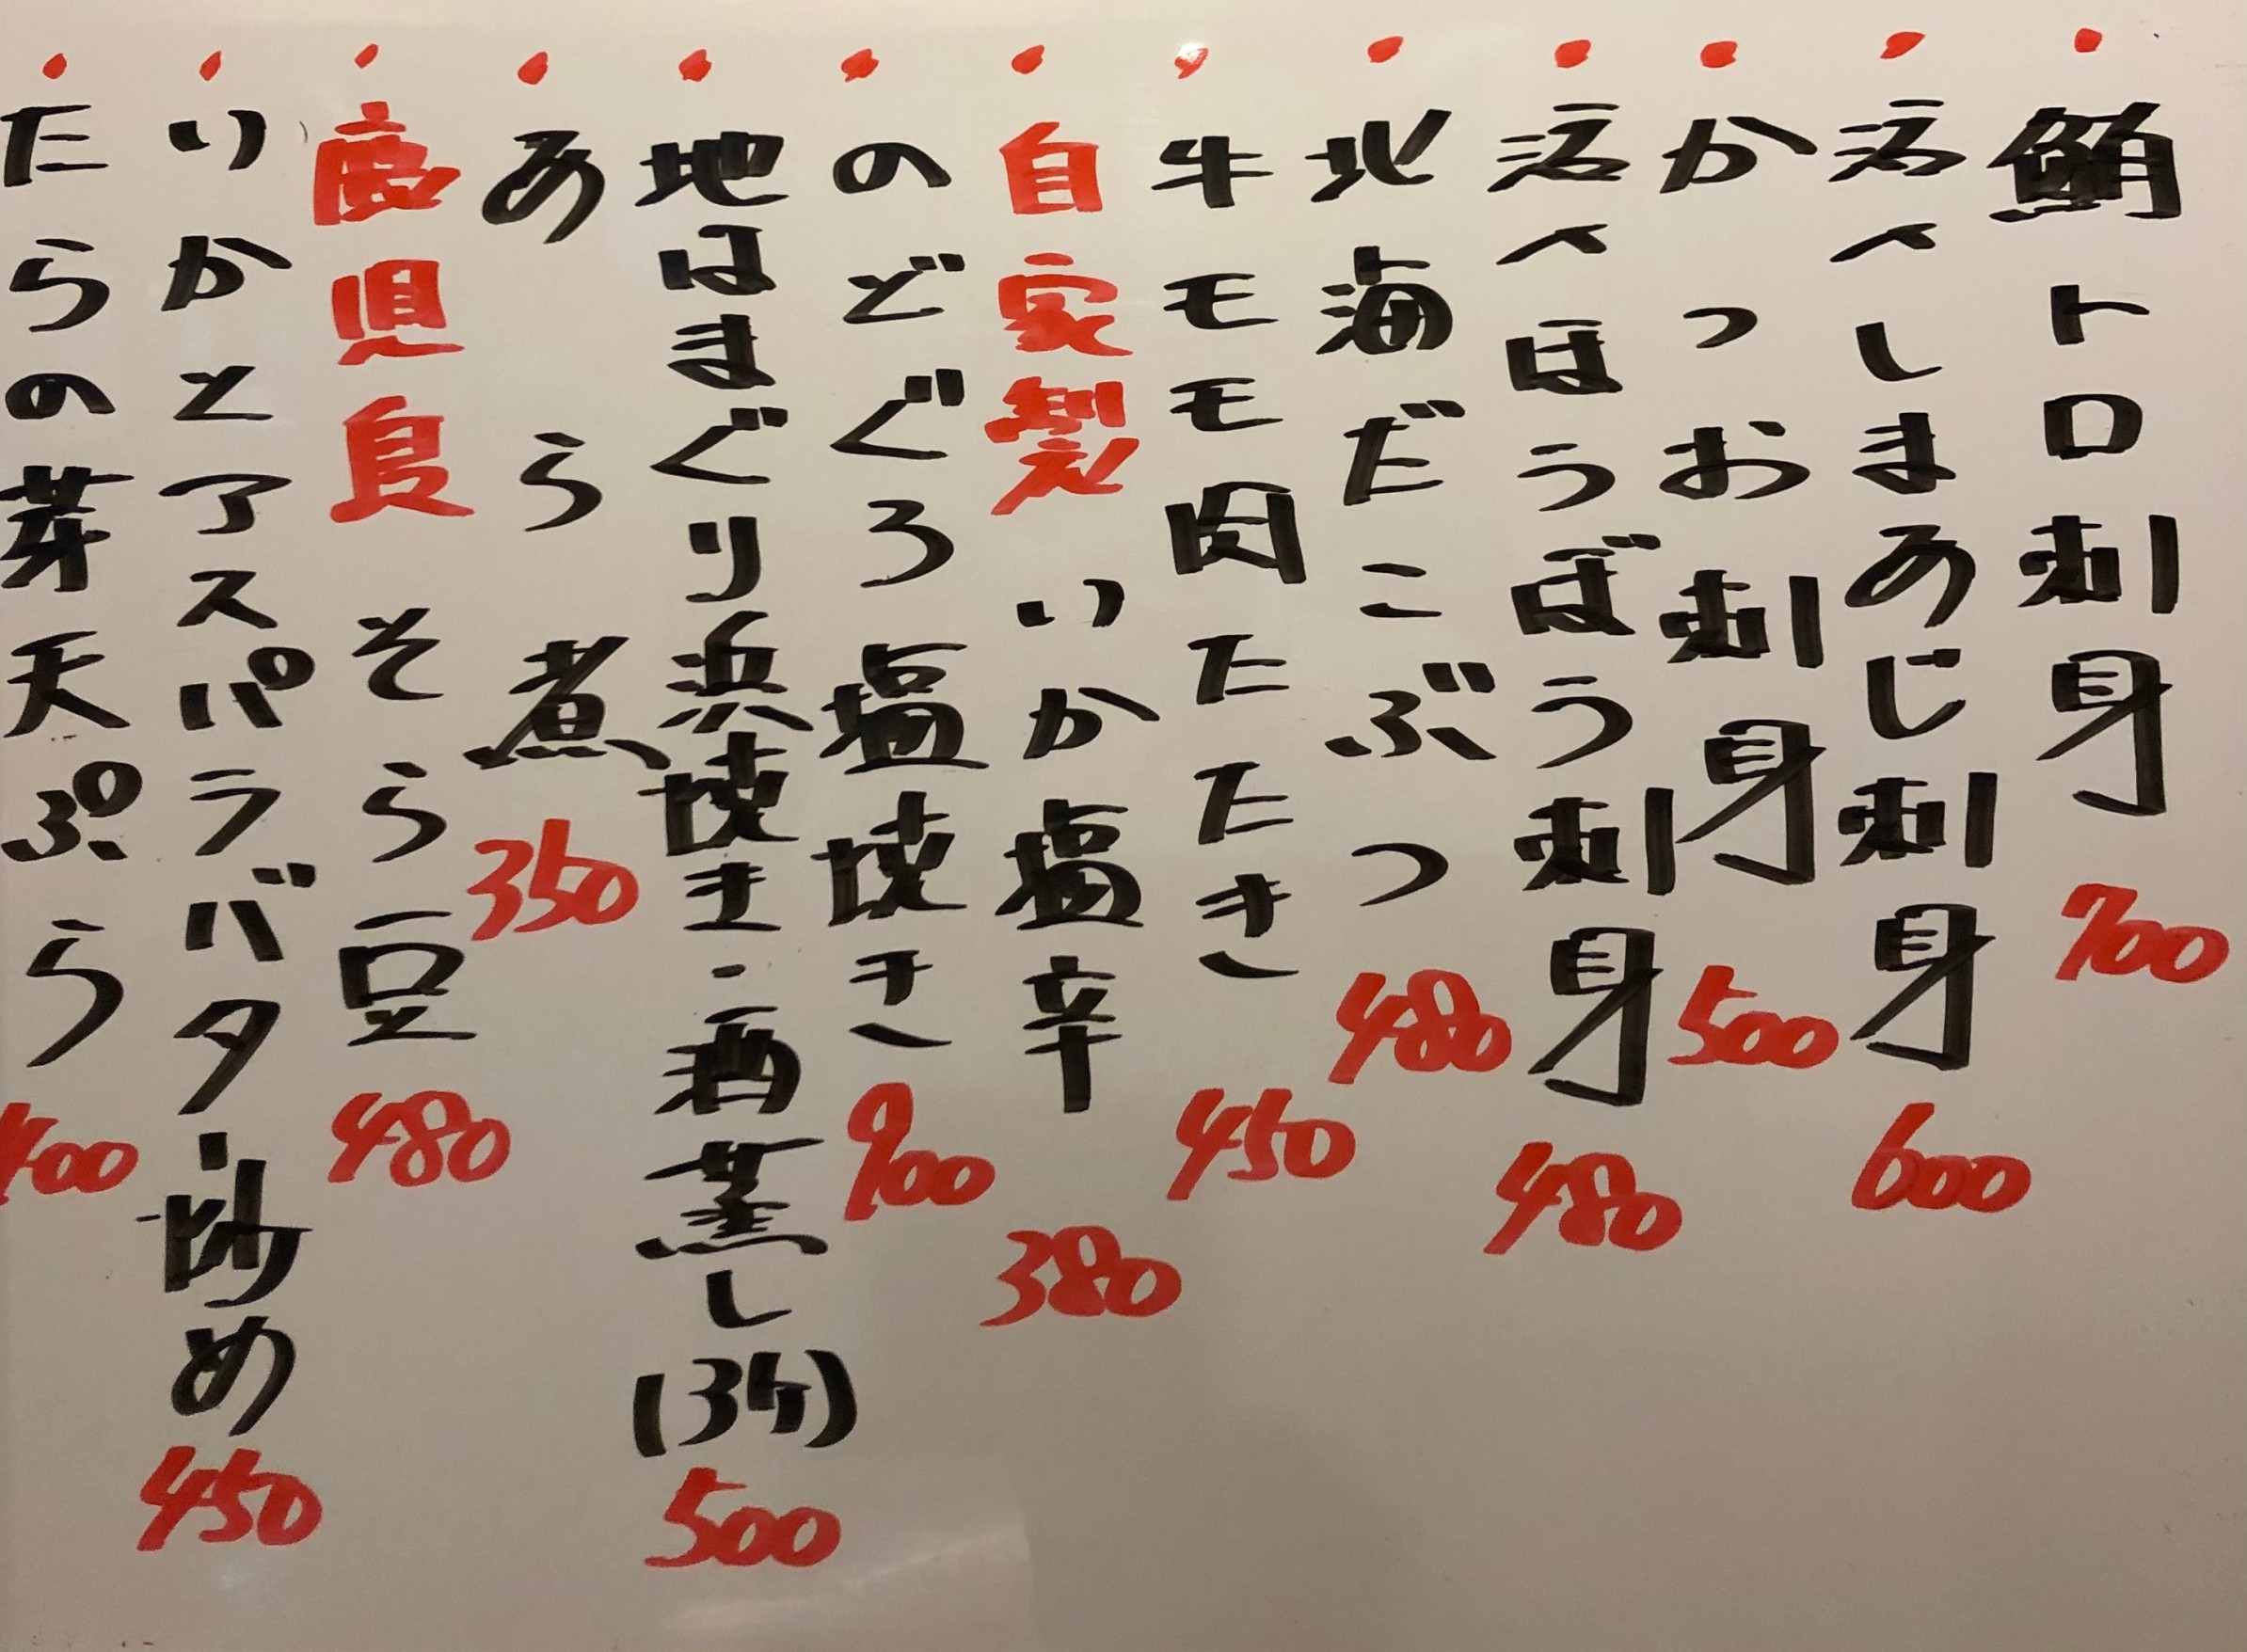 ・鮪トロ刺身 700
・活〆しまあじ刺身 600
・かつお刺身 500
・活〆ほうぼう刺身 480
・北海だこぶつ 480
・牛モモ肉たたき 450
・自家製いか塩辛 380
・のどぐろ塩焼き 900
・地はまぐり浜焼き・酒蒸し(3ケ) 500
・あら煮 350
・鹿児島そら豆 480
・いかとアスパラバター炒め 450
・たらの芽天ぷら 400